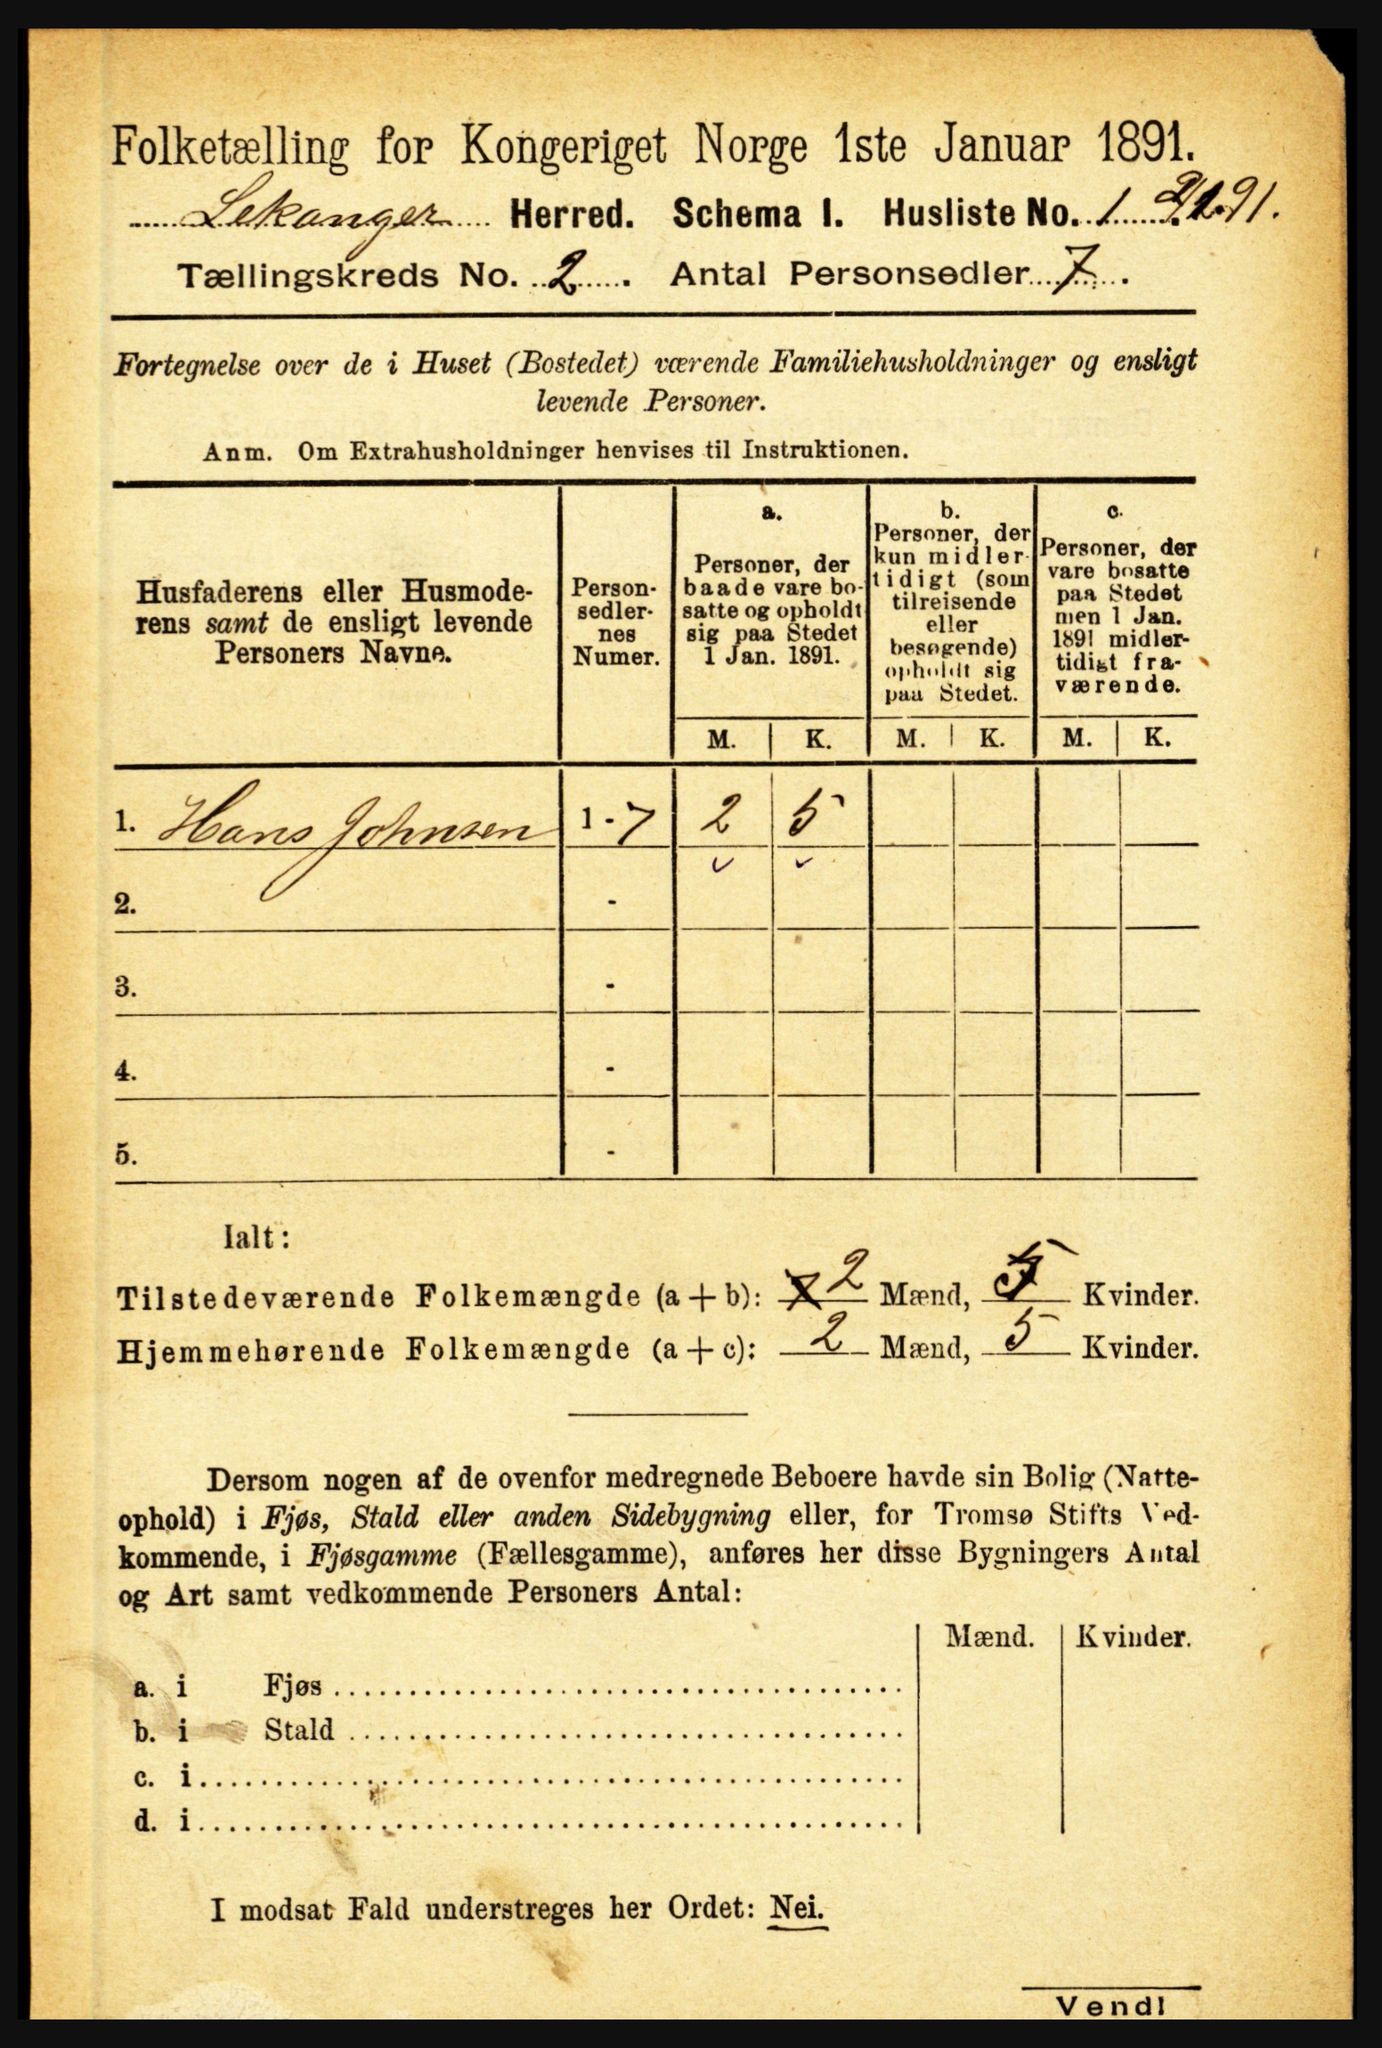 Folketælling for Kongeriget Norge 1ste Januar 1891.
Lekanger Herred. Schema I. Husliste No. 1
Tællingskreds No. 2. Antal Personsedler 7.
Fortegnelse over de i Huset (Bostedet) værende Familiehusholdninger og ensligt
levende Personer.
Anm. Om Extrahusholdninger henvises til Instruktionen.
Husfaderens eller Husmode-
rens samt de ensligt levende
Personers Navne.
Person-
sedler-
nes
Numer.
a.
Personer, der
baade vare bo-
satte og opholdt
sig paa Stedet
1 Jan. 1891.
b.
Personer, der
kun midler-
tidigt (som
tilreisende
eller
besøgende)
opholdt sig
paa Stedet.
c.
Personer, der
vare bosatte
paa Stedet
men 1 Jan.
1891 midler-
tidigt fra-
værende.
M. K. M. K. M. K.
1. Hans Johnsen 1-7 2 5
2. -
3. -
4. -
5. -
Ialt:
Tilstedeværende Folkemængde (a + b): 2 Mænd, 5 Kvinder.
Hjemmehørende Folkemængde (a + c): 2 Mænd, 5 Kvinder.
Dersom nogen af de ovenfor medregnede Beboere havde sin Bolig (Natte-
ophold) i Fjøs, Stald eller anden Sidebygning eller, for Tromsø Stifts Ved-
kommende, i Fjøsgamme (Fællesgamme), anføres her disse Bygningers Antal
og Art samt vedkommende Personers Antal:
Mænd. Kvinder.
a. i Fjøs
b. i Stald
c. i
d. i
I modsat Fald understreges her Ordet: Nei.
Vend!